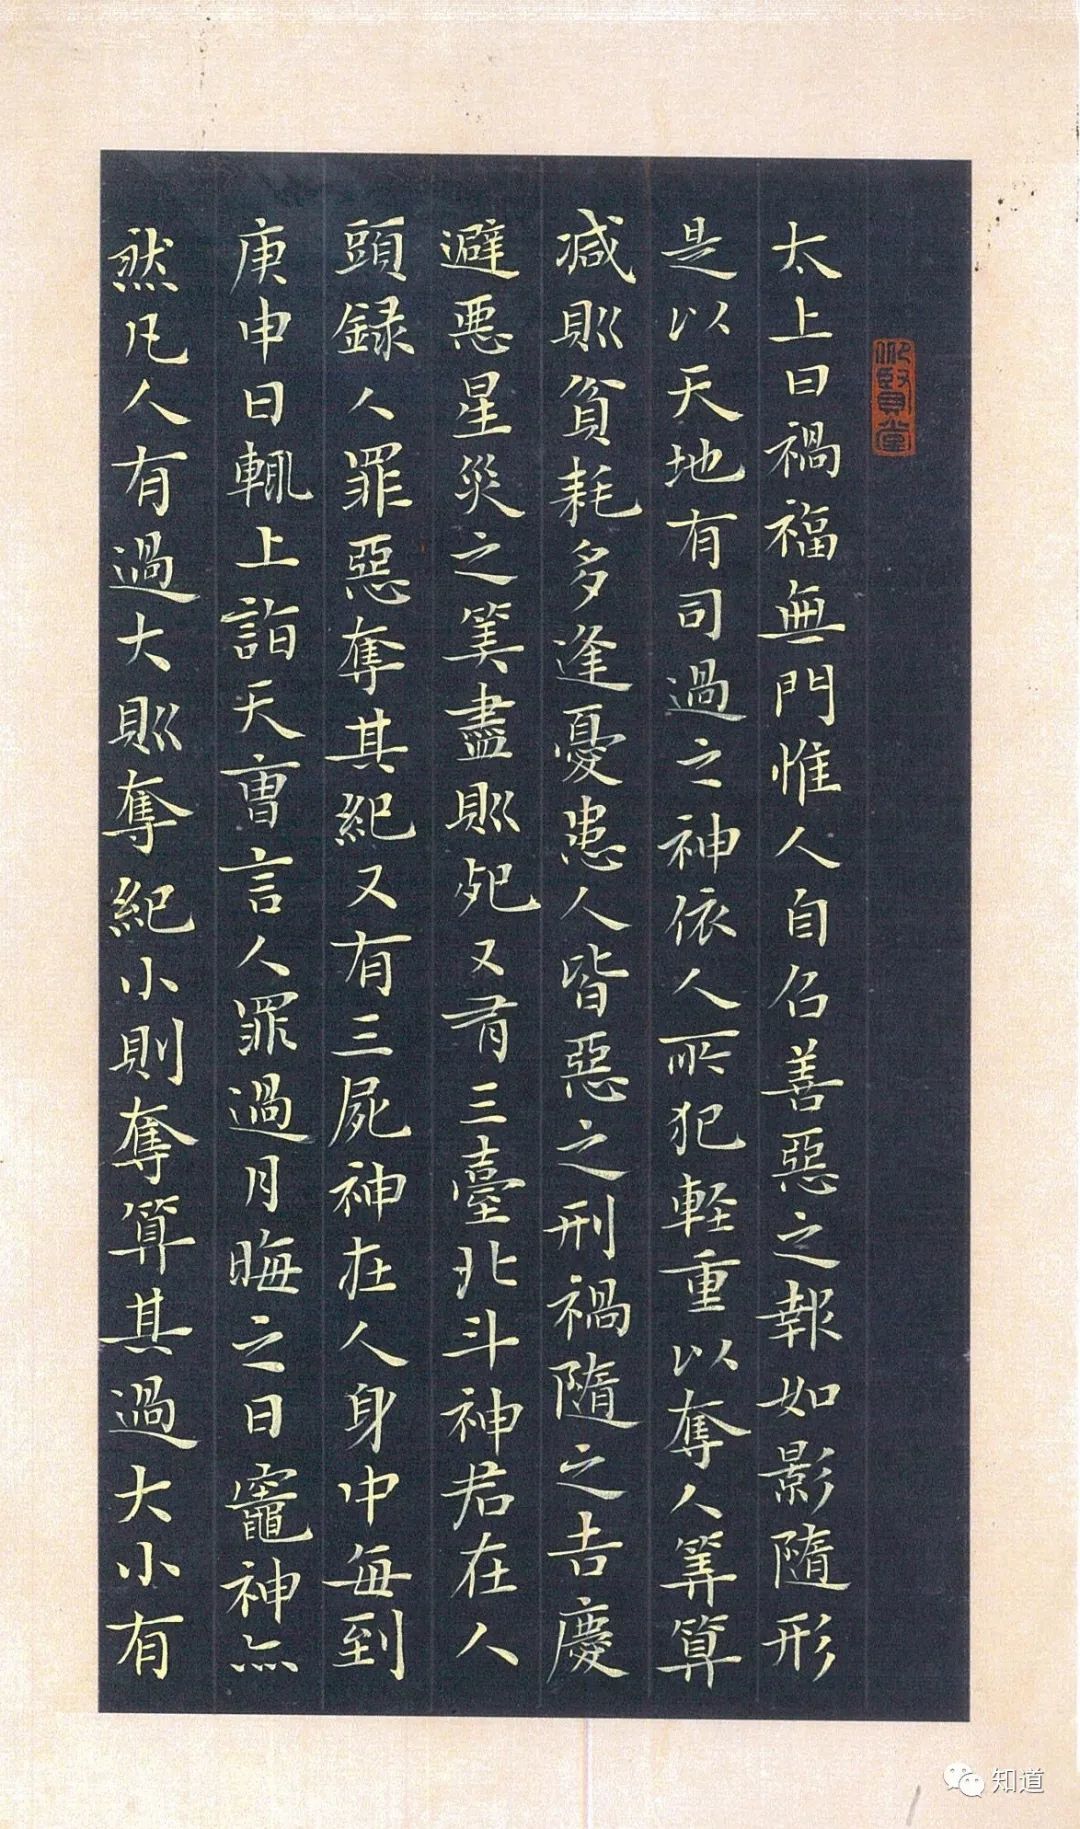 太上曰禍福無門惟人自召善惡之報如影隨形
是以天地有司過之神依人所犯輕重以奪人筭算
减則貧耗多逢憂患人皆惡之刑禍隨之吉慶
避惡星災之筭盡則死又有三臺北斗神君在人
頭録人罪惡奪其紀又有三尸神在人身中每到
庚申日輒上詣天曹言人罪過月晦之日竈神亦
然凡人有過大則奪紀小則奪算其過大小有
知道
1